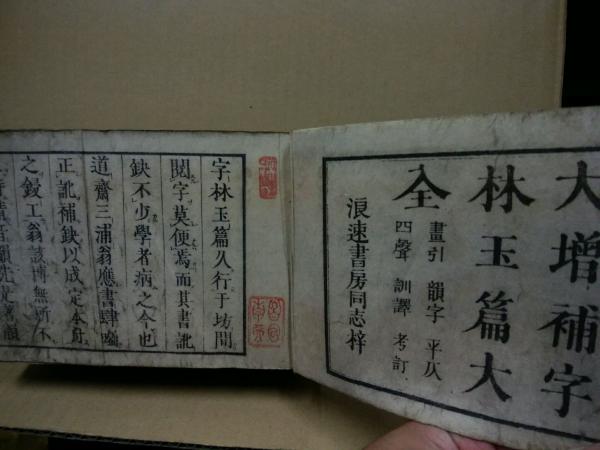 大增補字
林玉篇大
全
畫引 韻字 平仄
四聲 訓譯 考訂
浪速書房同志梓
字林玉篇久行于坊間
閱字莫便焉而其書訛
缺不少學者病之今也
道齋三浦翁應書肆囑
正訛補缺以成定本付
之鋟工翁該博無所不